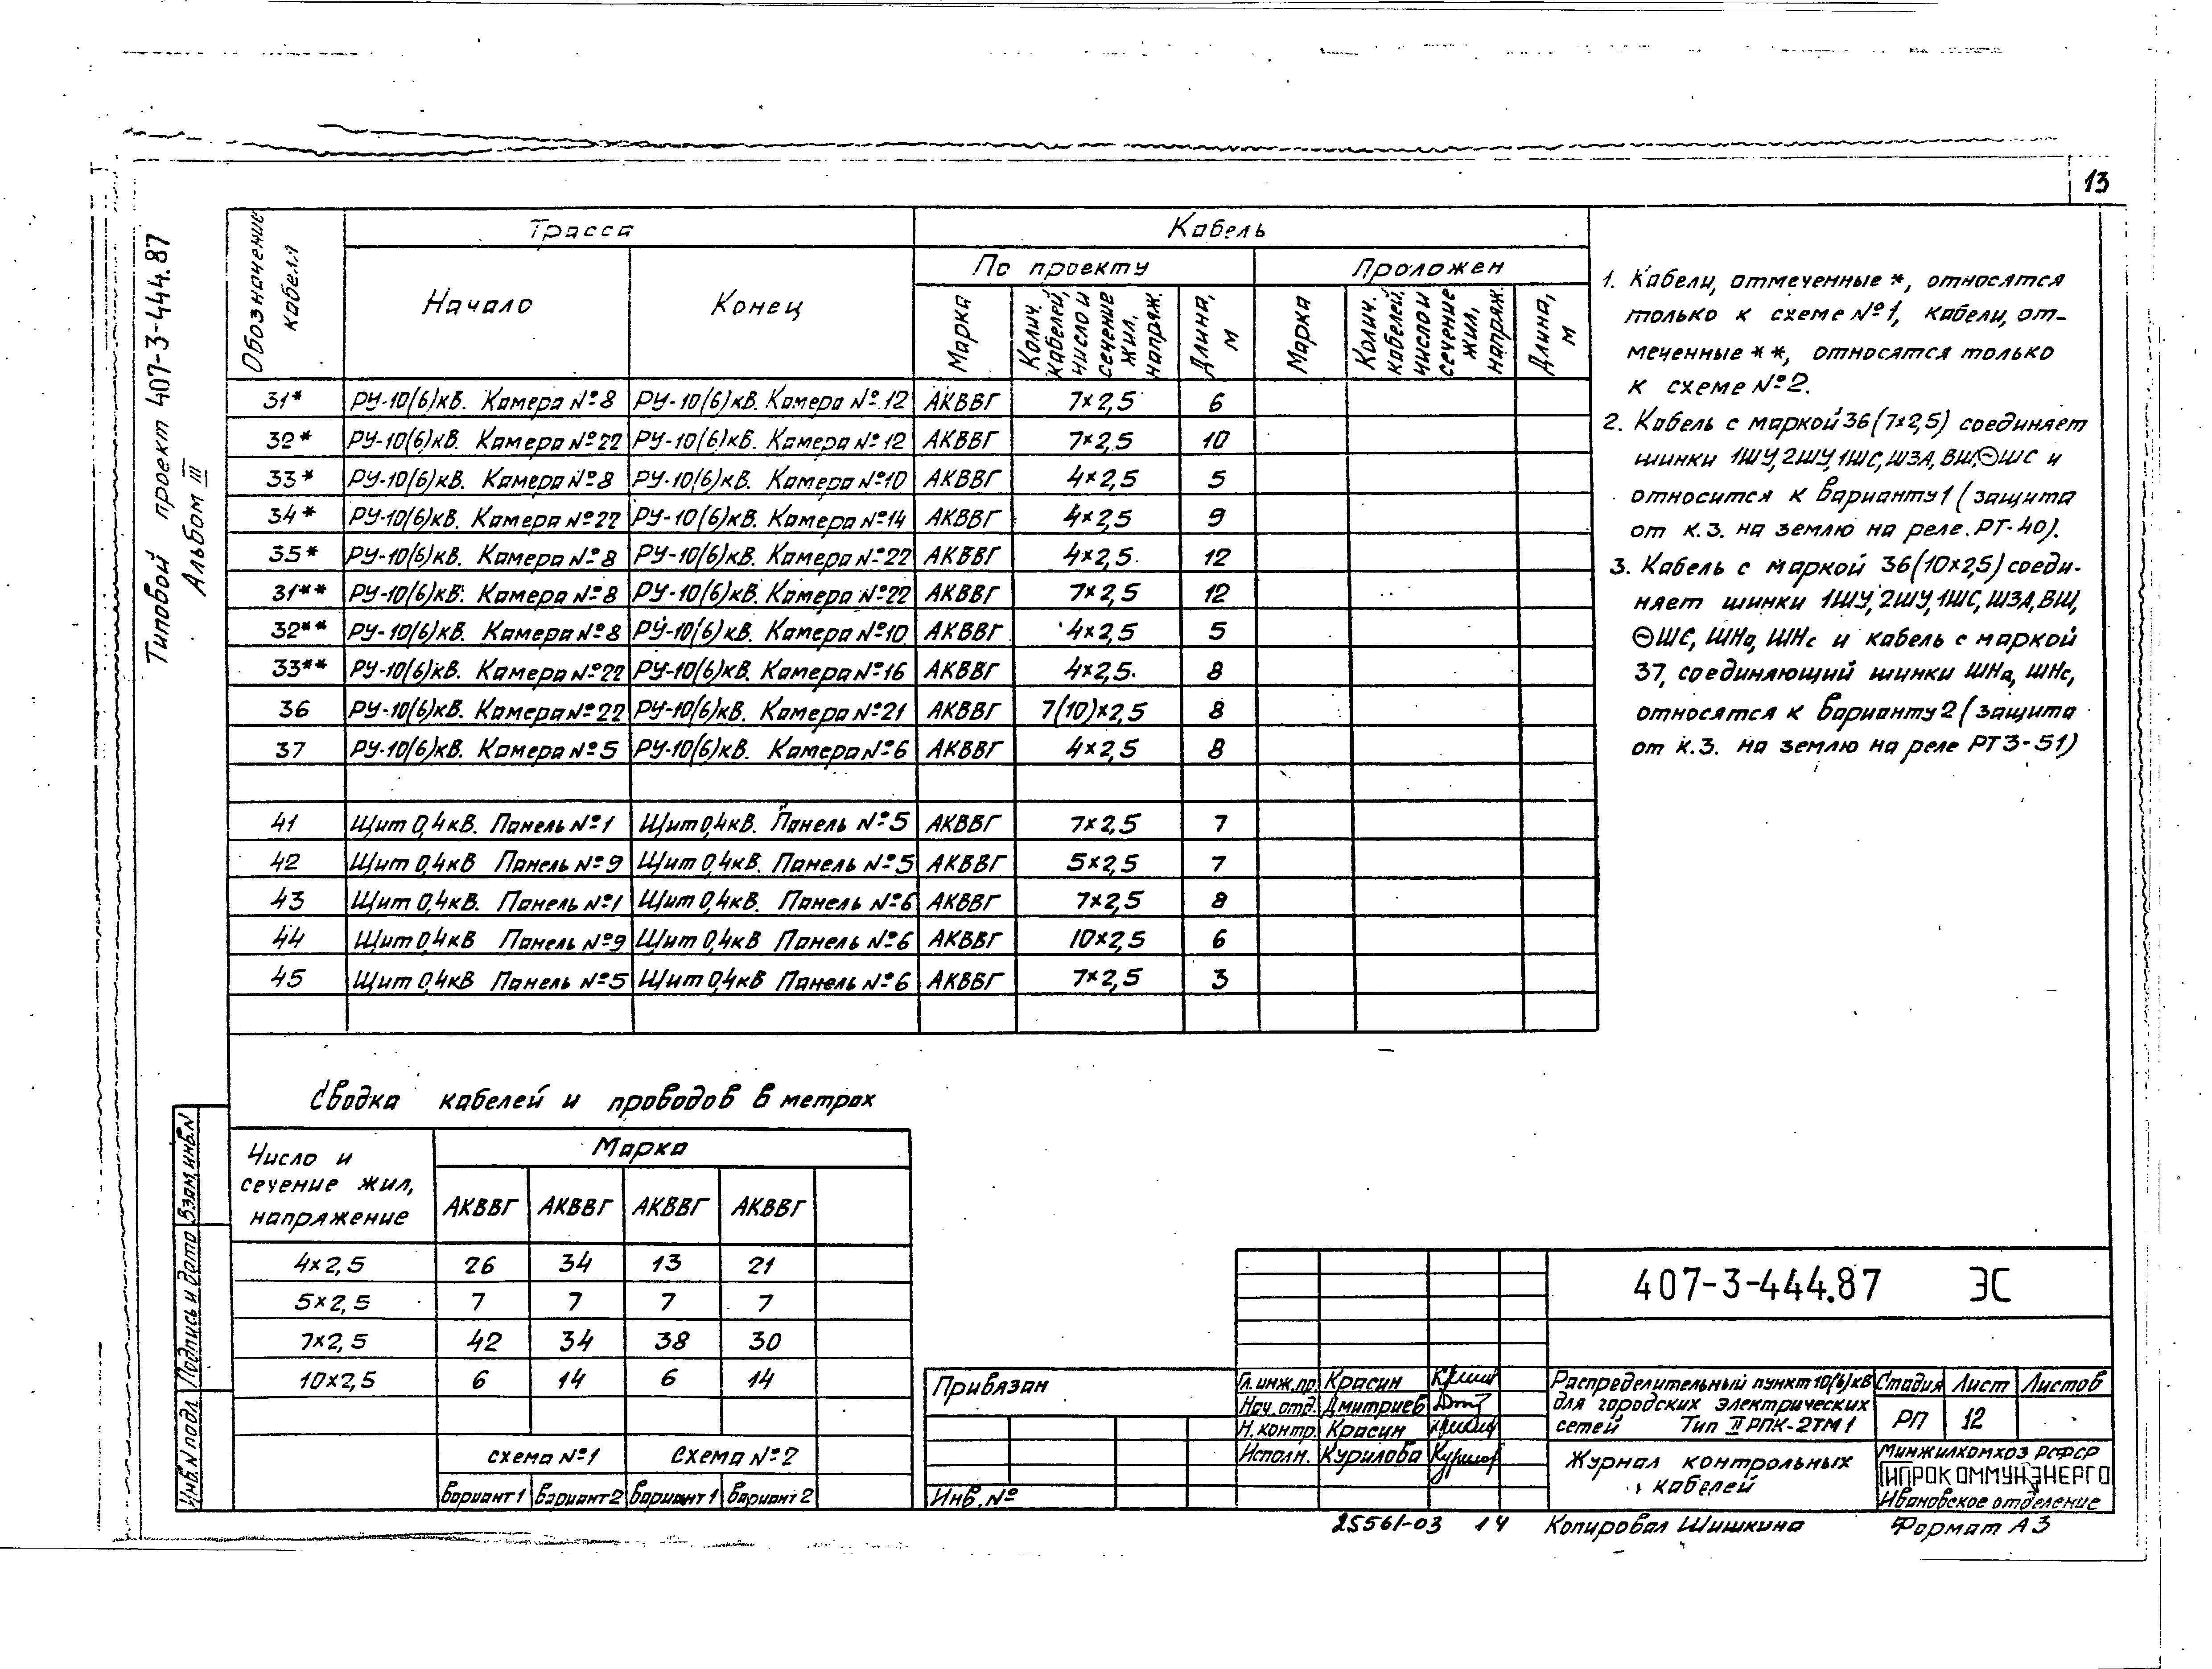 13
Типовой проект 407-3-444.87
Альбом III
Обозначение кабеля
Трасса
Кабель
Начало
Конец
По проекту
Проложен
Марка
Колич. кабелей, число и сечение жил, напряж.
Длина, м
Марка
Колич. кабелей, число и сечение жил, напряж.
Длина, м
31* РУ-10(6)кВ. Камера №8 РУ-10(6)кВ. Камера №12 АКВВГ 7×2,5 6
32* РУ-10(6)кВ. Камера №22 РУ-10(6)кВ. Камера №12 АКВВГ 7×2,5 10
33* РУ-10(6)кВ. Камера №8 РУ-10(6)кВ. Камера №10 АКВВГ 4×2,5 5
34* РУ-10(6)кВ. Камера №22 РУ-10(6)кВ. Камера №14 АКВВГ 4×2,5 9
35* РУ-10(6)кВ. Камера №8 РУ-10(6)кВ. Камера №22 АКВВГ 4×2,5 12
31** РУ-10(6)кВ. Камера №8 РУ-10(6)кВ. Камера №22 АКВВГ 7×2,5 12
32** РУ-10(6)кВ. Камера №8 РУ-10(6)кВ. Камера №10 АКВВГ 4×2,5 5
33** РУ-10(6)кВ. Камера №22 РУ-10(6)кВ. Камера №16 АКВВГ 4×2,5 8
36 РУ-10(6)кВ. Камера №22 РУ-10(6)кВ. Камера №21 АКВВГ 7(10)×2,5 8
37 РУ-10(6)кВ. Камера №5 РУ-10(6)кВ. Камера №6 АКВВГ 4×2,5 8
41 Щит 0,4кВ. Панель №1 Щит 0,4кВ. Панель №5 АКВВГ 7×2,5 7
42 Щит 0,4кВ Панель №9 Щит 0,4кВ. Панель №5 АКВВГ 5×2,5 7
43 Щит 0,4кВ. Панель №1 Щит 0,4кВ. Панель №6 АКВВГ 7×2,5 8
44 Щит 0,4кВ Панель №9 Щит 0,4кВ Панель №6 АКВВГ 10×2,5 6
45 Щит 0,4кВ Панель №5 Щит 0,4кВ Панель №6 АКВВГ 7×2,5 3
1. Кабели, отмеченные *, относятся
только к схеме №1, кабели, от-
меченные **, относятся только
к схеме №2.
2. Кабель с маркой 36(7×2,5) соединяет
шинки 1ШУ, 2ШУ, 1ШС, ШЗА, ВШ, ⊖ШС и
относится к варианту 1 (защита
от к.з. на землю на реле РТ-40).
3. Кабель с маркой 36(10×2,5) соеди-
няет шинки 1ШУ, 2ШУ, 1ШС, ШЗА, ВШ,
⊖ШС, ШНа, ШНс и кабель с маркой
37, соединяющий шинки ШНа, ШНс,
относятся к варианту 2 (защита
от к.з. на землю на реле РТЗ-51)
Сводка кабелей и проводов в метрах
Число и сечение жил, напряжение
Марка
АКВВГ АКВВГ АКВВГ АКВВГ
4×2,5 26 34 13 21
5×2,5 7 7 7 7
7×2,5 42 34 38 30
10×2,5 6 14 6 14
схема №1 схема №2
вариант 1 вариант 2 вариант 1 вариант 2
Взам.инв.N
Подпись и дата
Инв.N подл.
Привязан
Инв. №
407-3-444.87 ЭС
Гл. инж. пр. Красин
Нач. отд. Дмитриев
Н. контр. Красин
Исполн. Курилова
Распределительный пункт 10(6)кВ
для городских электрических
сетей Тип II РПК-2ТМ1
Стадия Лист Листов
РП 12
Журнал контрольных
кабелей
Минжилкомхоз РСФСР
ГИПРОКОММУНЭНЕРГО
Ивановское отделение
25561-03 14 Копировал Шишкина Формат А3